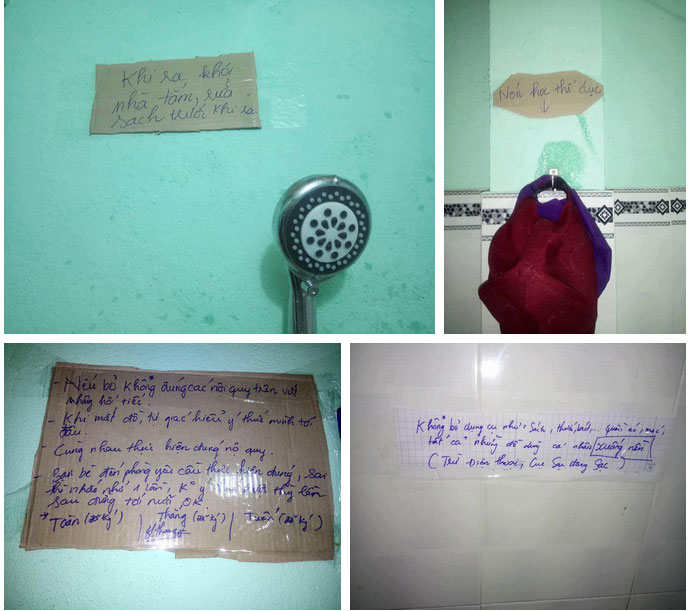 Khi ra khỏi
nhà tắm, rửa
sạch trước khi ra
Nón học thể dục
↓
- Nếu bỏ không đúng các nội quy trên vứt
không hối tiếc.
- Khi mất đồ, tự giác hiểu ý thức mình tới
đâu.
- Cùng nhau thực hiện đúng nô quy.
- Bạn bè đến phòng yêu cầu thực hiện đúng, sau
thì nhắc nhở 1 lần, K°
sau đừng tới nữa OK
* Toàn (đã ký) | Thắng (đã ký) | Tuấn (đã ký)
Không bỏ dụng cụ như: Sách, thước, bút,... quần áo, mũ,
tất cả những đồ dùng cá nhân xuống nền
(Trừ Điện thoại, Cục Sạc đang Sạc)